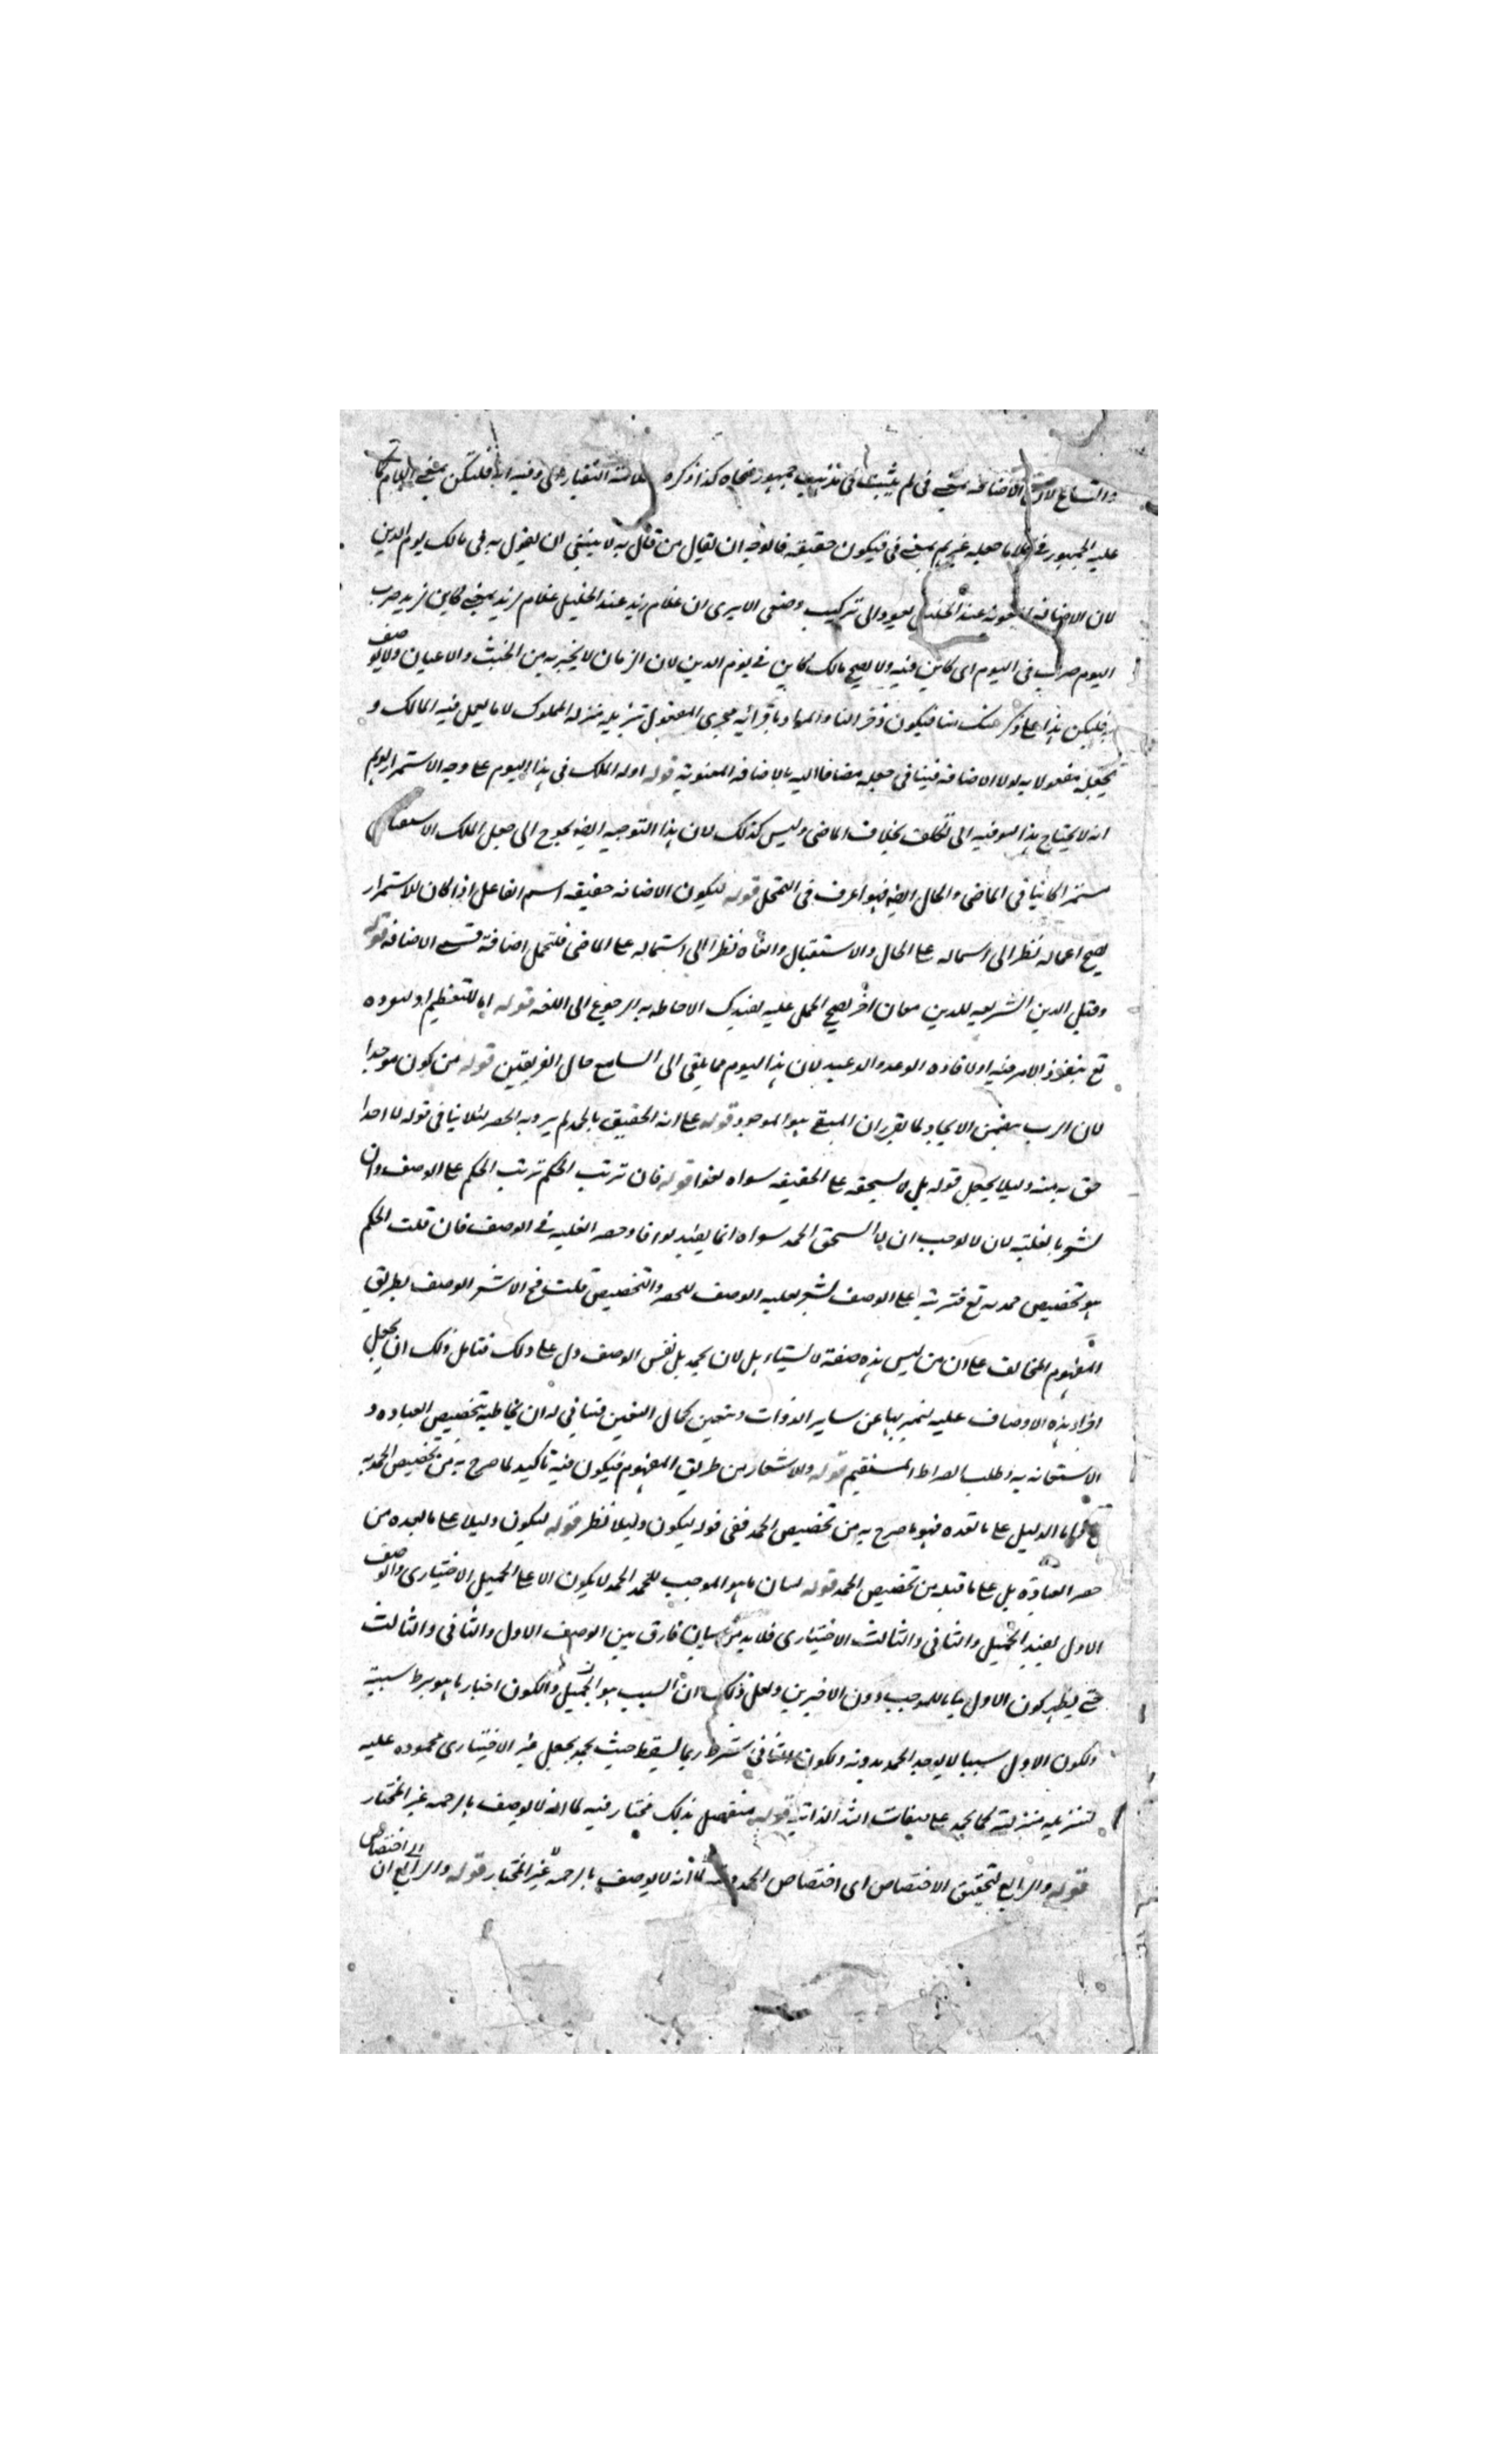 والتساع لان الاضافة بمعنى في لم يثبت في مذهب جمهور نحاه كذا ذكره العلامة التفتازاني وفيه انه فلتكن بمعنى اللام كما
عليه الجمهور في كلام ما جعله غيرهم بمعنى في فيكون حقيقة فالوجه ان يقال من قال به لا ينبغي ان يقول به في مالك يوم الدين
لان الاضافه المعنويه عند الخليل يعود الى تركيب وصفى الا يرى ان غلام زيد عند الخليل غلام لزيد بمعنى كاين لزيد ضرب
اليوم ضرب في اليوم اى كاين فيه ولا يصح مالك كاين في يوم الدين لان الزمان لا يخبر به من الجثث والاعيان ولا يوصف
به فليكن هذا على ذكر منك مجرى المفعول تنزيله منزله المملوك لا ما يعمل فيه المالك و
تجعله مفعولا به لولا الاضافه فينافى جعله مضافا اليه بالاضافه المعنوية قوله اوله الملك في هذا اليوم على وجه الاستمرار يوهم
انه لا يحتاج هذا التوجيه الى تكلف بخلاف الماضى وليس كذلك لان هذا التوجيه ايضا يحوج الى جعل الملك الاستقبالى
مستمرا كاينا في الماضى والحال ايضا فهو اعرف في التمحل قوله ليكون الاضافه حقيقه اسم الفاعل اذا كان للاستمرار
يصح اعماله نظر الى اشتماله على الحال والاستقبال والغاه نظرا الى اشتماله على الماضى فلتحمل اضافة الاضافه قوله
وقيل الدين الشريعه للدين معان اخر يصح الحمل عليه يفيدك الاحاطه به الرجوع الى اللغه قوله اما للتعظيم او لتفرده
تع بنفوذ الامر فيه او لافاده الوعد والوعيد لان هذا اليوم مما يلقى الى السامع حال الفريقين قوله من كون موجدا
لان الرب يتضمن الايجاد لما تقرر ان المبقى هو الموجد قوله على انه الحقيق بالحمد لم يرد به الحصر لئلا ينافى قوله لا احدا
حق به منه وليلا يجعل قوله بل لا يستحقه على الحقيقه سواه لغوا قوله فان ترتب الحكم ترتب الحكم على الوصف وان
يشعر بالعلية لان لا يوجب ان لا يستحق الحمد سواه انما يفيد لو افاد حصر العليه في الوصف فان قلت الحكم
هو تخصيص حمد به تع فترتبه على الوصف يشعر بعليه الوصف للحصر والتخصيص قلت فح الاشعر الوصف بطريق
المفهوم المخالف على ان من ليس هذه صفته لا يستاهل لان يحمد بل نفس الوصف دل على ذلك فتامل ذلك ان يجعل
اجراء هذه الاوصاف عليه ليميز بها عن ساير الذوات ويتعين كمال التعين فيتاتى له ان يخاطبه بتخصيص العباده و
الاستعانه به وطلب الصراط المستقيم قوله وللاشعار من طريق المفهوم فيكون فيه تاكيد لما صرح به من تخصيص الحمد به
تع واما الدليل على ما بعده فهو ما صرح به من تخصيص الحمد ففى قوله ليكون دليلا نظر قوله ليكون دليلا على ما بعده من
حصر العباده بل على ما قبله من تخصيص الحمد قوله لبيان ما هو الموجب للحمد الحمد لا يكون الا على الجميل الاختيارى والوصف
الاول يفيد الجميل والثانى والثالث الاختيارى فلابد من بيان فارق بين الوصف الاول والثانى والثالث
حتى يظهر كون الاول بيانا للموجب دون الاخيرين ولعل ذلك ان السبب هو الجميل والكون اختياريا هو شرط سببية
ولكون الاول سببا لا يوجد الحمد بدونه ولكون الثانى شرطا ربما يسقط حيث يحمد بجعل غير الاختيارى محموده عليه
لتنزيله منزلته كما يحمد على صفات الله الذاتيه قوله متفضل بذلك مختار فيه لما انه لا يوصف بالرحمه غير المختار
قوله والرابع لتحقيق الاختصاص اى اختصاص الحمد به لما انه لا يوصف بالرحمة غير المختار قوله والرابع ان الى اختصاص